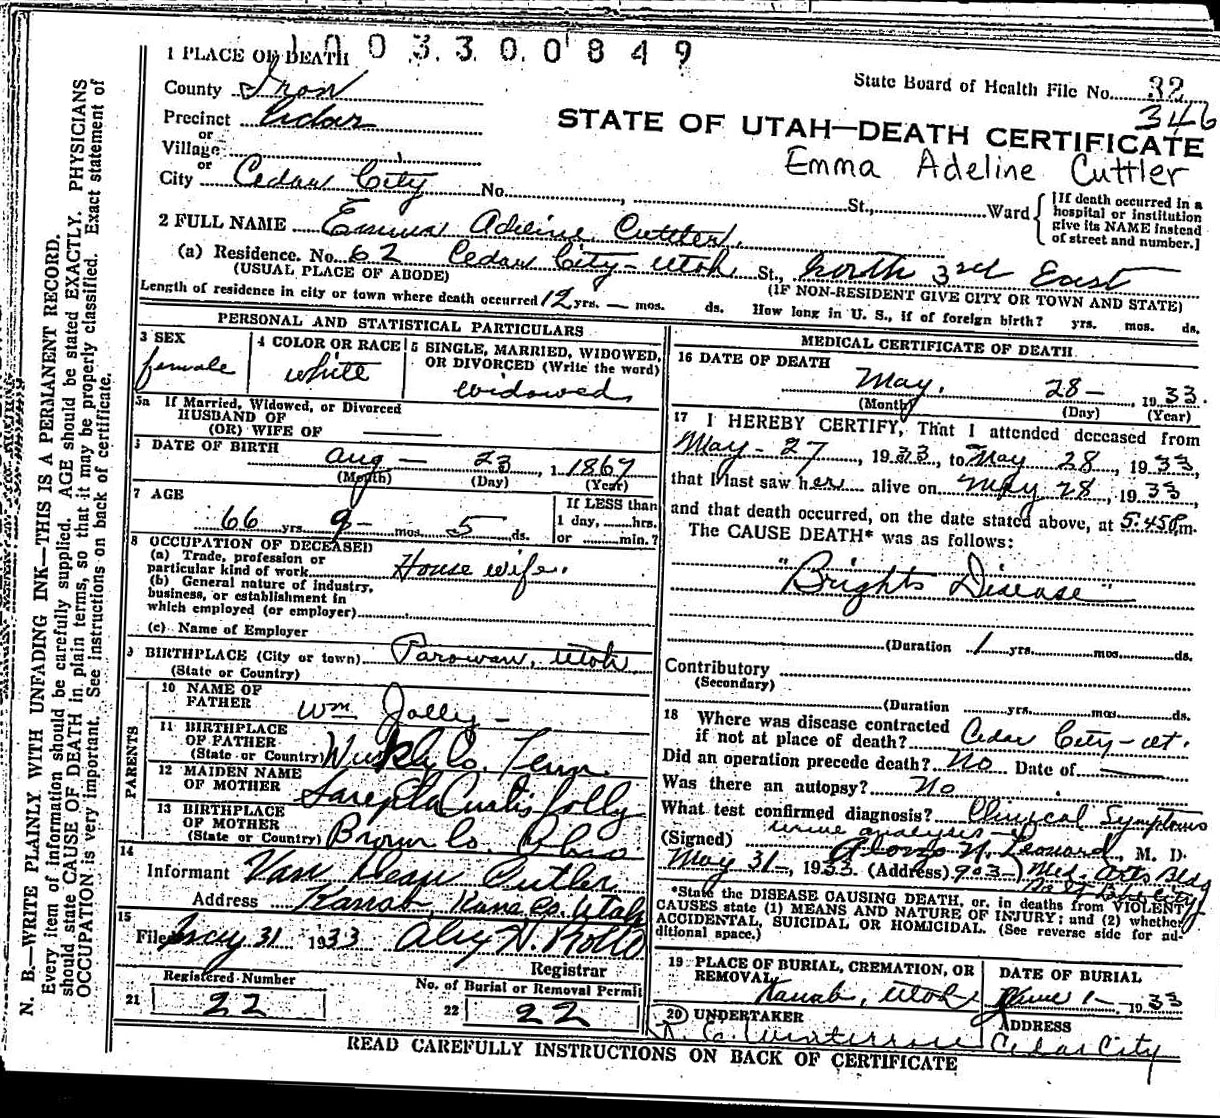 1003300849
1 PLACE OF DEATH
State Board of Health File No. 32
346
County Iron
Precinct Cedar
or
Village
or
City Cedar City No. St., Ward
STATE OF UTAH—DEATH CERTIFICATE
Emma Adeline Cuttler
[If death occurred in a
hospital or institution
give its NAME instead
of street and number.]
2 FULL NAME Emma Adeline Cuttler.
(a) Residence. No. 62 Cedar City - Utah St., North 3rd East
(USUAL PLACE OF ABODE) (IF NON-RESIDENT GIVE CITY OR TOWN AND STATE)
Length of residence in city or town where death occurred 12 yrs. — mos. ds. How long in U. S., if of foreign birth? yrs. mos. ds.
PERSONAL AND STATISTICAL PARTICULARS
3 SEX
female
4 COLOR OR RACE
white
5 SINGLE, MARRIED, WIDOWED,
OR DIVORCED (Write the word)
widowed
5a If Married, Widowed, or Divorced
HUSBAND OF
(OR) WIFE OF
DATE OF BIRTH
Aug — 23, 1867
(Month) (Day) (Year)
7 AGE
66 yrs. 9 - mos. 5 ds.
If LESS than
1 day, hrs.
or min.?
8 OCCUPATION OF DECEASED
(a) Trade, profession or
particular kind of work House wife.
(b) General nature of industry,
business, or establishment in
which employed (or employer)
(c) Name of Employer
9 BIRTHPLACE (City or town) Parowan, Utah
(State or Country)
PARENTS
10 NAME OF
FATHER Wm Jolley -
11 BIRTHPLACE
OF FATHER
(State or Country) Co. Tenn.
12 MAIDEN NAME
OF MOTHER Curtis Jolly
13 BIRTHPLACE
OF MOTHER
(State or Country) Brown Co. Ohio
14
Informant Van Dean Cutler
Address Kanab, Kane Co. Utah
15
Filed May 31 1933
Registrar
Registered Number
21 22
No. of Burial or Removal Permit
22 22
MEDICAL CERTIFICATE OF DEATH
16 DATE OF DEATH
May. 28 -, 1933.
(Month) (Day) (Year)
17 I HEREBY CERTIFY, That I attended deceased from
May - 27, 1933, to May 28, 1933,
that I last saw her alive on May 28, 1933
and that death occurred, on the date stated above, at 5.45 P.m.
The CAUSE DEATH* was as follows:
"Brights Disease"
(Duration 1 yrs. mos. ds.
Contributory
(Secondary)
(Duration yrs. mos. ds.
18 Where was disease contracted
if not at place of death? Cedar City - ut.
Did an operation precede death? No Date of
Was there an autopsy? No
What test confirmed diagnosis? Clinical Symptoms
urine analysis -
(Signed) Leonard, M. D.
May 31, 1933. (Address) 903 - Med. Arts Bldg
Salt Lake City
*State the DISEASE CAUSING DEATH, or, in deaths from VIOLENT
CAUSES state (1) MEANS AND NATURE OF INJURY; and (2) whether
ACCIDENTAL, SUICIDAL OR HOMICIDAL. (See reverse side for ad-
ditional space.)
19 PLACE OF BURIAL, CREMATION, OR
REMOVAL
Kanab, Utah
DATE OF BURIAL
June 1 - 1933
20 UNDERTAKER
ADDRESS
Cedar City
READ CAREFULLY INSTRUCTIONS ON BACK OF CERTIFICATE
N. B.—WRITE PLAINLY WITH UNFADING INK—THIS IS A PERMANENT RECORD.
Every item of information should be carefully supplied. AGE should be stated EXACTLY. PHYSICIANS
should state CAUSE OF DEATH in plain terms, so that it may be properly classified. Exact statement of
OCCUPATION is very important. See instructions on back of certificate.